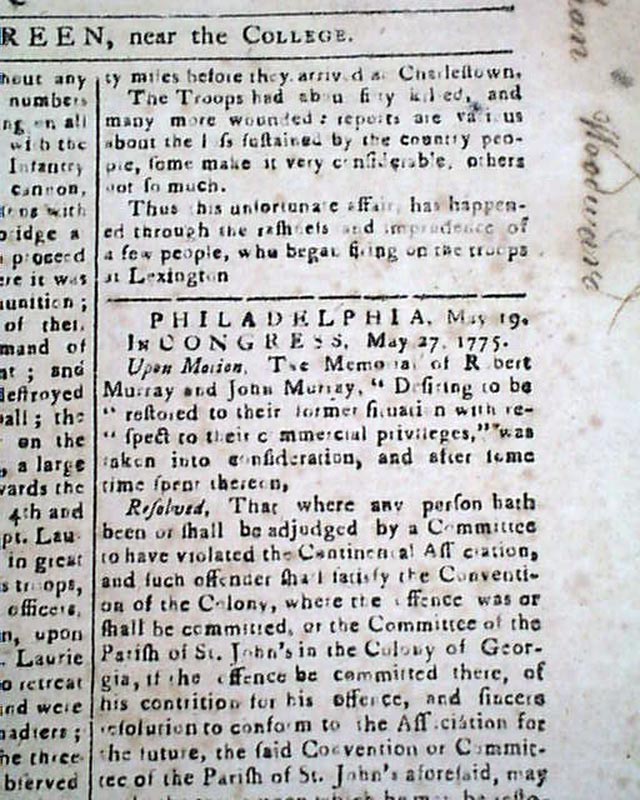 REEN, near the COLLEGE.
hout any
numbers
ng on all
with the
Infantry
cannon,
ens with
bridge a
proceed
ere it was
munition;
of their
mand of
nt; and
destroyed
ball; the
on the
, a large
wards the
4th and
pt. Lau-
in great
s troops,
officers,
n, upon
. Laurie
o retreat
and were
nadiers;
he three
bserved
ty miles before they arrived at Charlestown.
The Troops had about fifty killed, and
many more wounded: reports are various
about the loſs ſuſtained by the country peo-
ple, ſome make it very conſiderable, others
not ſo much.
Thus this unfortunate affair, has happen-
ed through the raſhneſs and imprudence of
a few people, who began firing on the troops
at Lexington
PHILADELPHIA, May 19.
IN CONGRESS, May 27, 1775.
Upon Motion, The Memorial of Robert
Murray and John Murray, " Deſiring to be
" reſtored to their former ſituation with re-
" ſpect to their commercial privileges," was
taken into conſideration, and after ſome
time ſpent thereon,
Reſolved, That where any perſon hath
been or ſhall be adjudged by a Committee
to have violated the Continental Aſſociation,
and ſuch offender ſhall ſatisfy the Conventi-
on of the Colony, where the offence was or
ſhall be committed, or the Committee of the
Pariſh of St. John's in the Colony of Geor-
gia, if the offence be committed there, of
his contrition for his offence, and ſincere
reſolution to conform to the Aſſociation for
the future, the ſaid Convention or Commit-
tee of the Pariſh of St. John's aforeſaid, may
Woodward